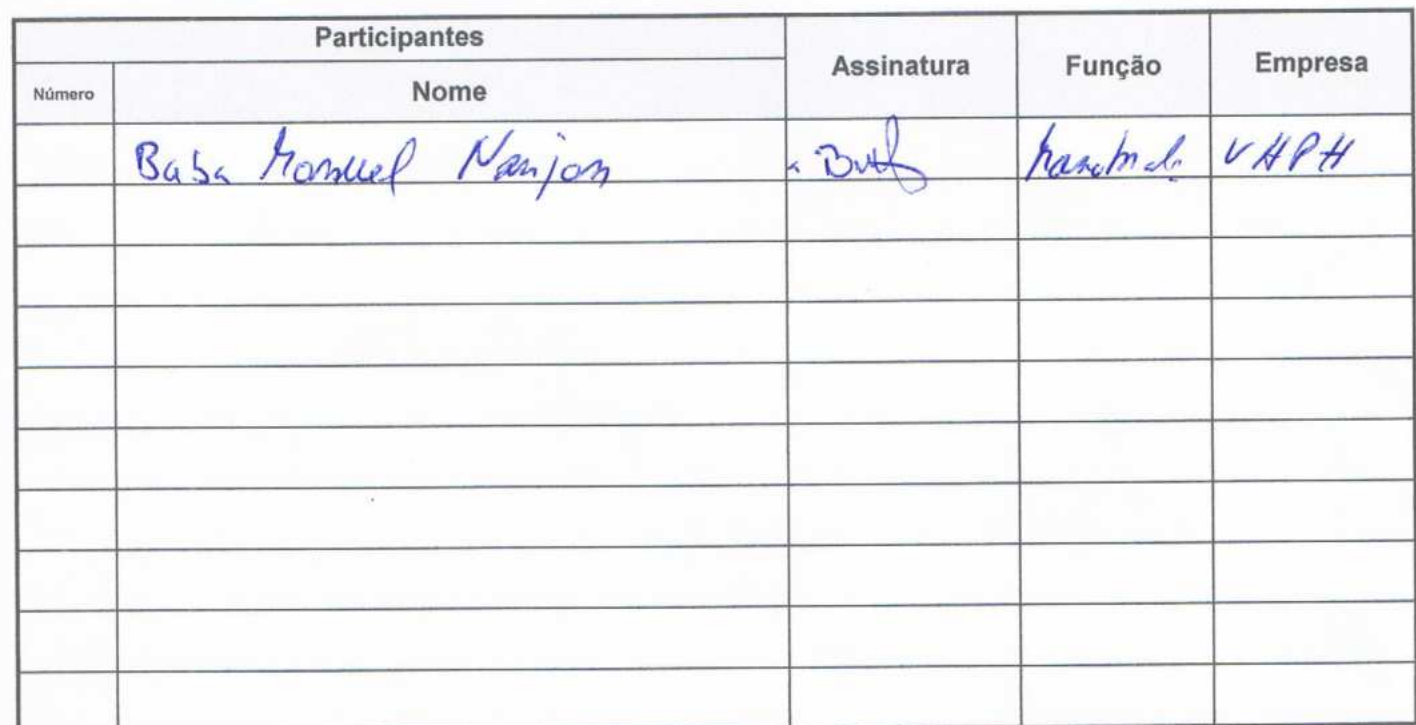 Participantes
Assinatura Função Empresa
Número Nome
Baba Manuel Nanjan VHPH